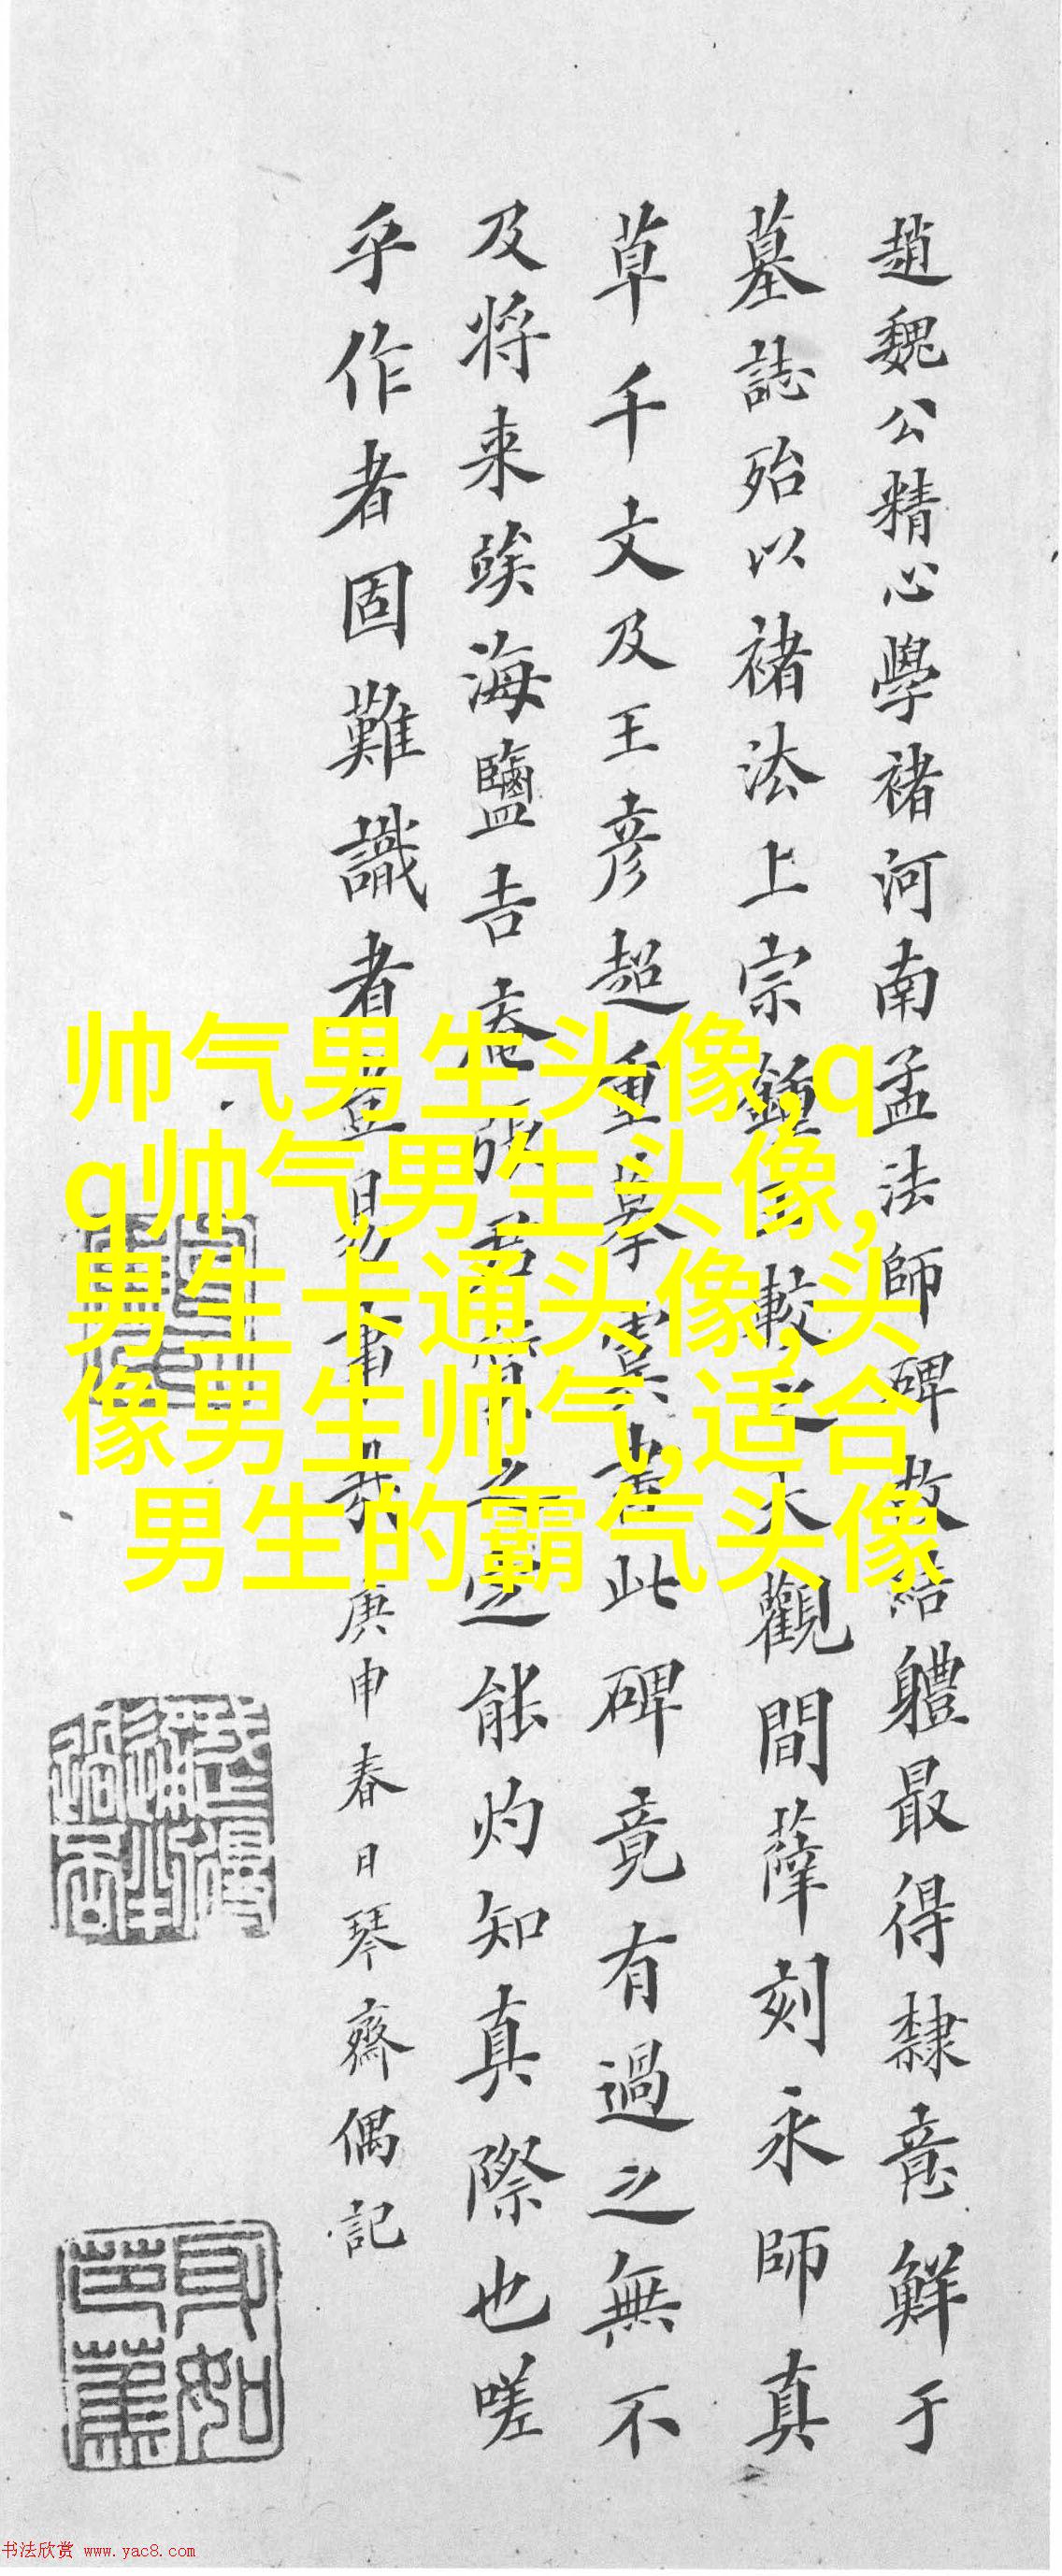 趙魏公精心學褚河南孟法師碑故結軆最得隸意鮮于
墓誌殆以褚法上宗鍾較之大觀間薛刻永師真
草千文及王彥超重摹虞書此碑竟有過之無不
及將来竢海鹽吉庵張君之定能灼知真際也嗟
乎作者固難識者豈易事哉庚申春日琴齋偶記
帅气男生头像,q
q帅气男生头像,
男生卡通头像,头
像男生帅气,适合
男生的霸气头像
身如
芭蕉
书法欣赏 www.yac8.com